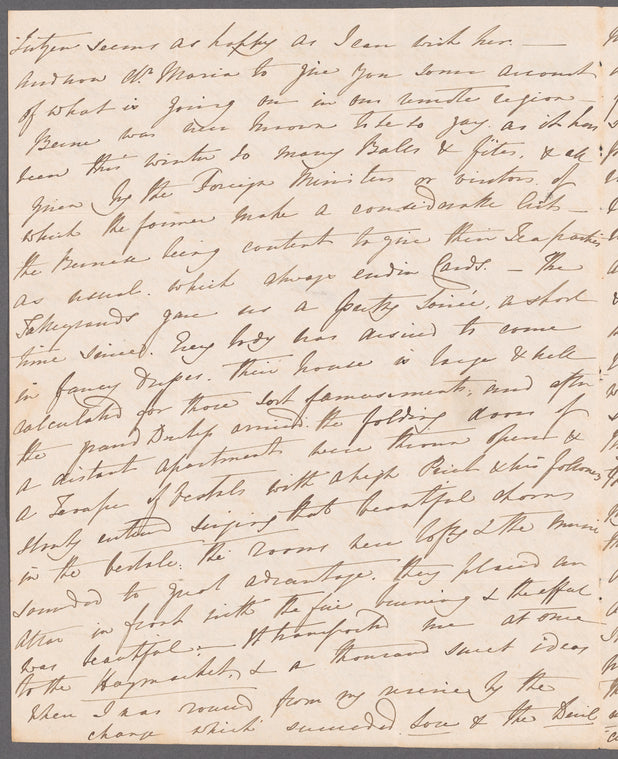 seems as happy as I can wish her. —
And now Dr. Maria to give you some account
of what is going on in our remote region —
Berne was never known to be so gay as it has
been this winter so many Balls & fêtes, & all
given by the Foreign Ministers or visitors, of
which the former make a considerable list —
the Bernese being content to give their Tea parties
as usual. which always end in Cards. — The
Talleyrands gave us a pretty Soirée, a short
time since. Every body was desired to come
in fancy dresses. their house is large & well
calculated for those sort of amusements, and after
the grand arrived. the folding doors of
a distant apartment were thrown open &
a Troupe of Vestals with a high Priest & his followers
slowly entered singing that beautiful chorus
in the Vestale. the rooms were lofty & the music
sounded to great advantage. they placed an
altar in front with the fire burning & the effect
was beautiful. — It transported me at once
to the Haymarket, & a thousand sweet ideas
when I was roused from my reverie by the
change which succeeded. Love & the Devil